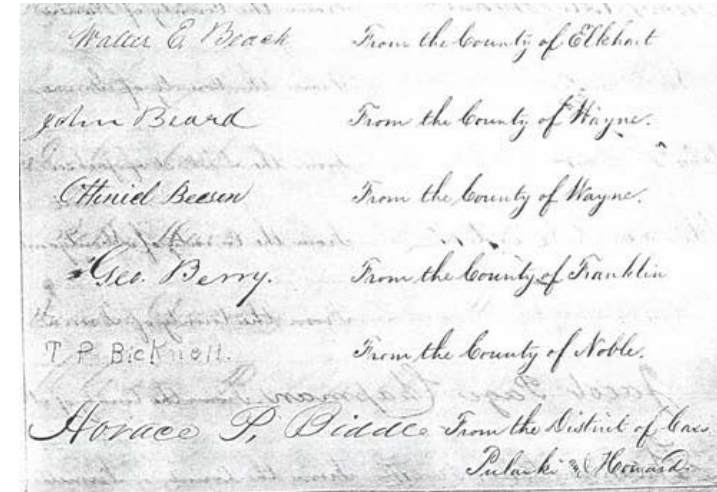 Walter E Beach From the County of Elkhart
John Beard From the County of Wayne.
Othniel Beeson From the County of Wayne.
Geo. Berry. From the County of Franklin
T P Bicknell. From the County of Noble.
Horace P. Biddle From the District of Cass
Pulaski & Howard.
Jacob Page Chapman